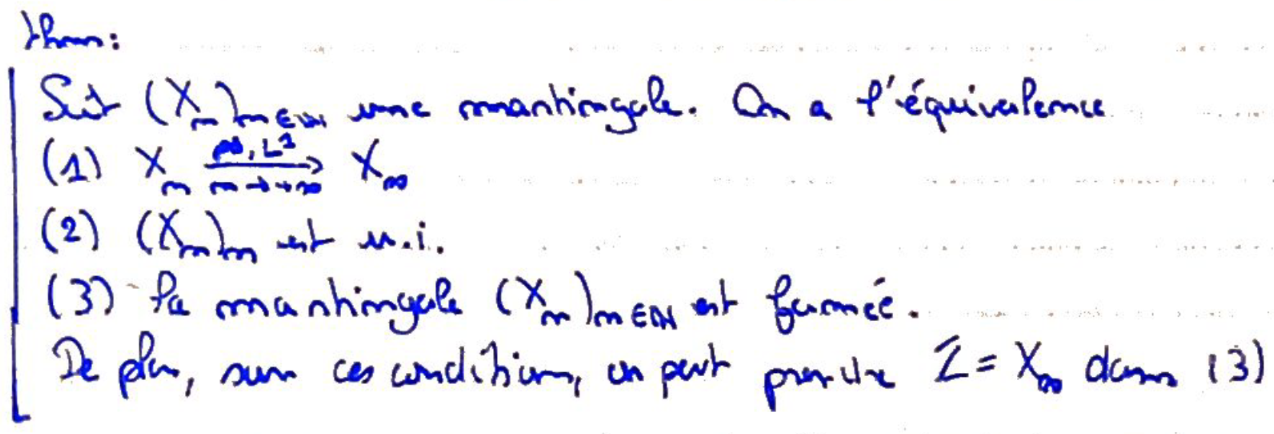 thm:
Soit (X_n)_{n∈ℕ} une martingale. On a l'équivalence
(1) X_n \xrightarrow[n→+∞]{ps, L^1} X_∞
(2) (X_n)_n est u.i.
(3) la martingale (X_n)_{n∈ℕ} est fermée.
De plus, sous ces conditions, on peut prendre Z = X_∞ dans (3)